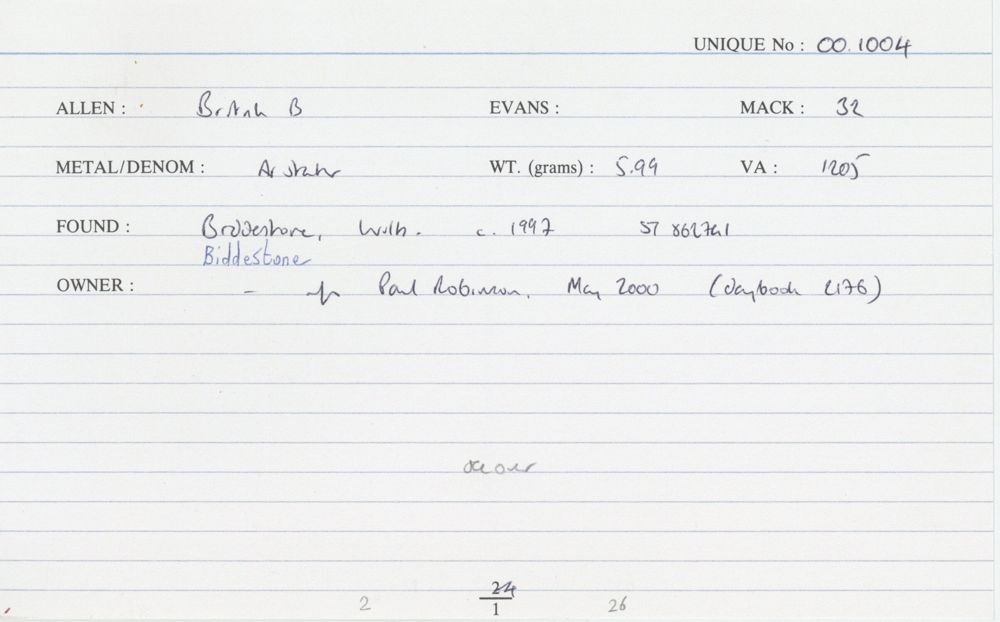 UNIQUE No : 00.1004
ALLEN : British B EVANS : MACK : 32
METAL/DENOM : Ar stater WT. (grams) : 5.99 VA : 1205
FOUND : Biddestone, Wilts. c. 1997 ST 862741
Biddestone
OWNER : - Paul Robinson, May 2000 (daybook 2176)
see over
24
2 1 26